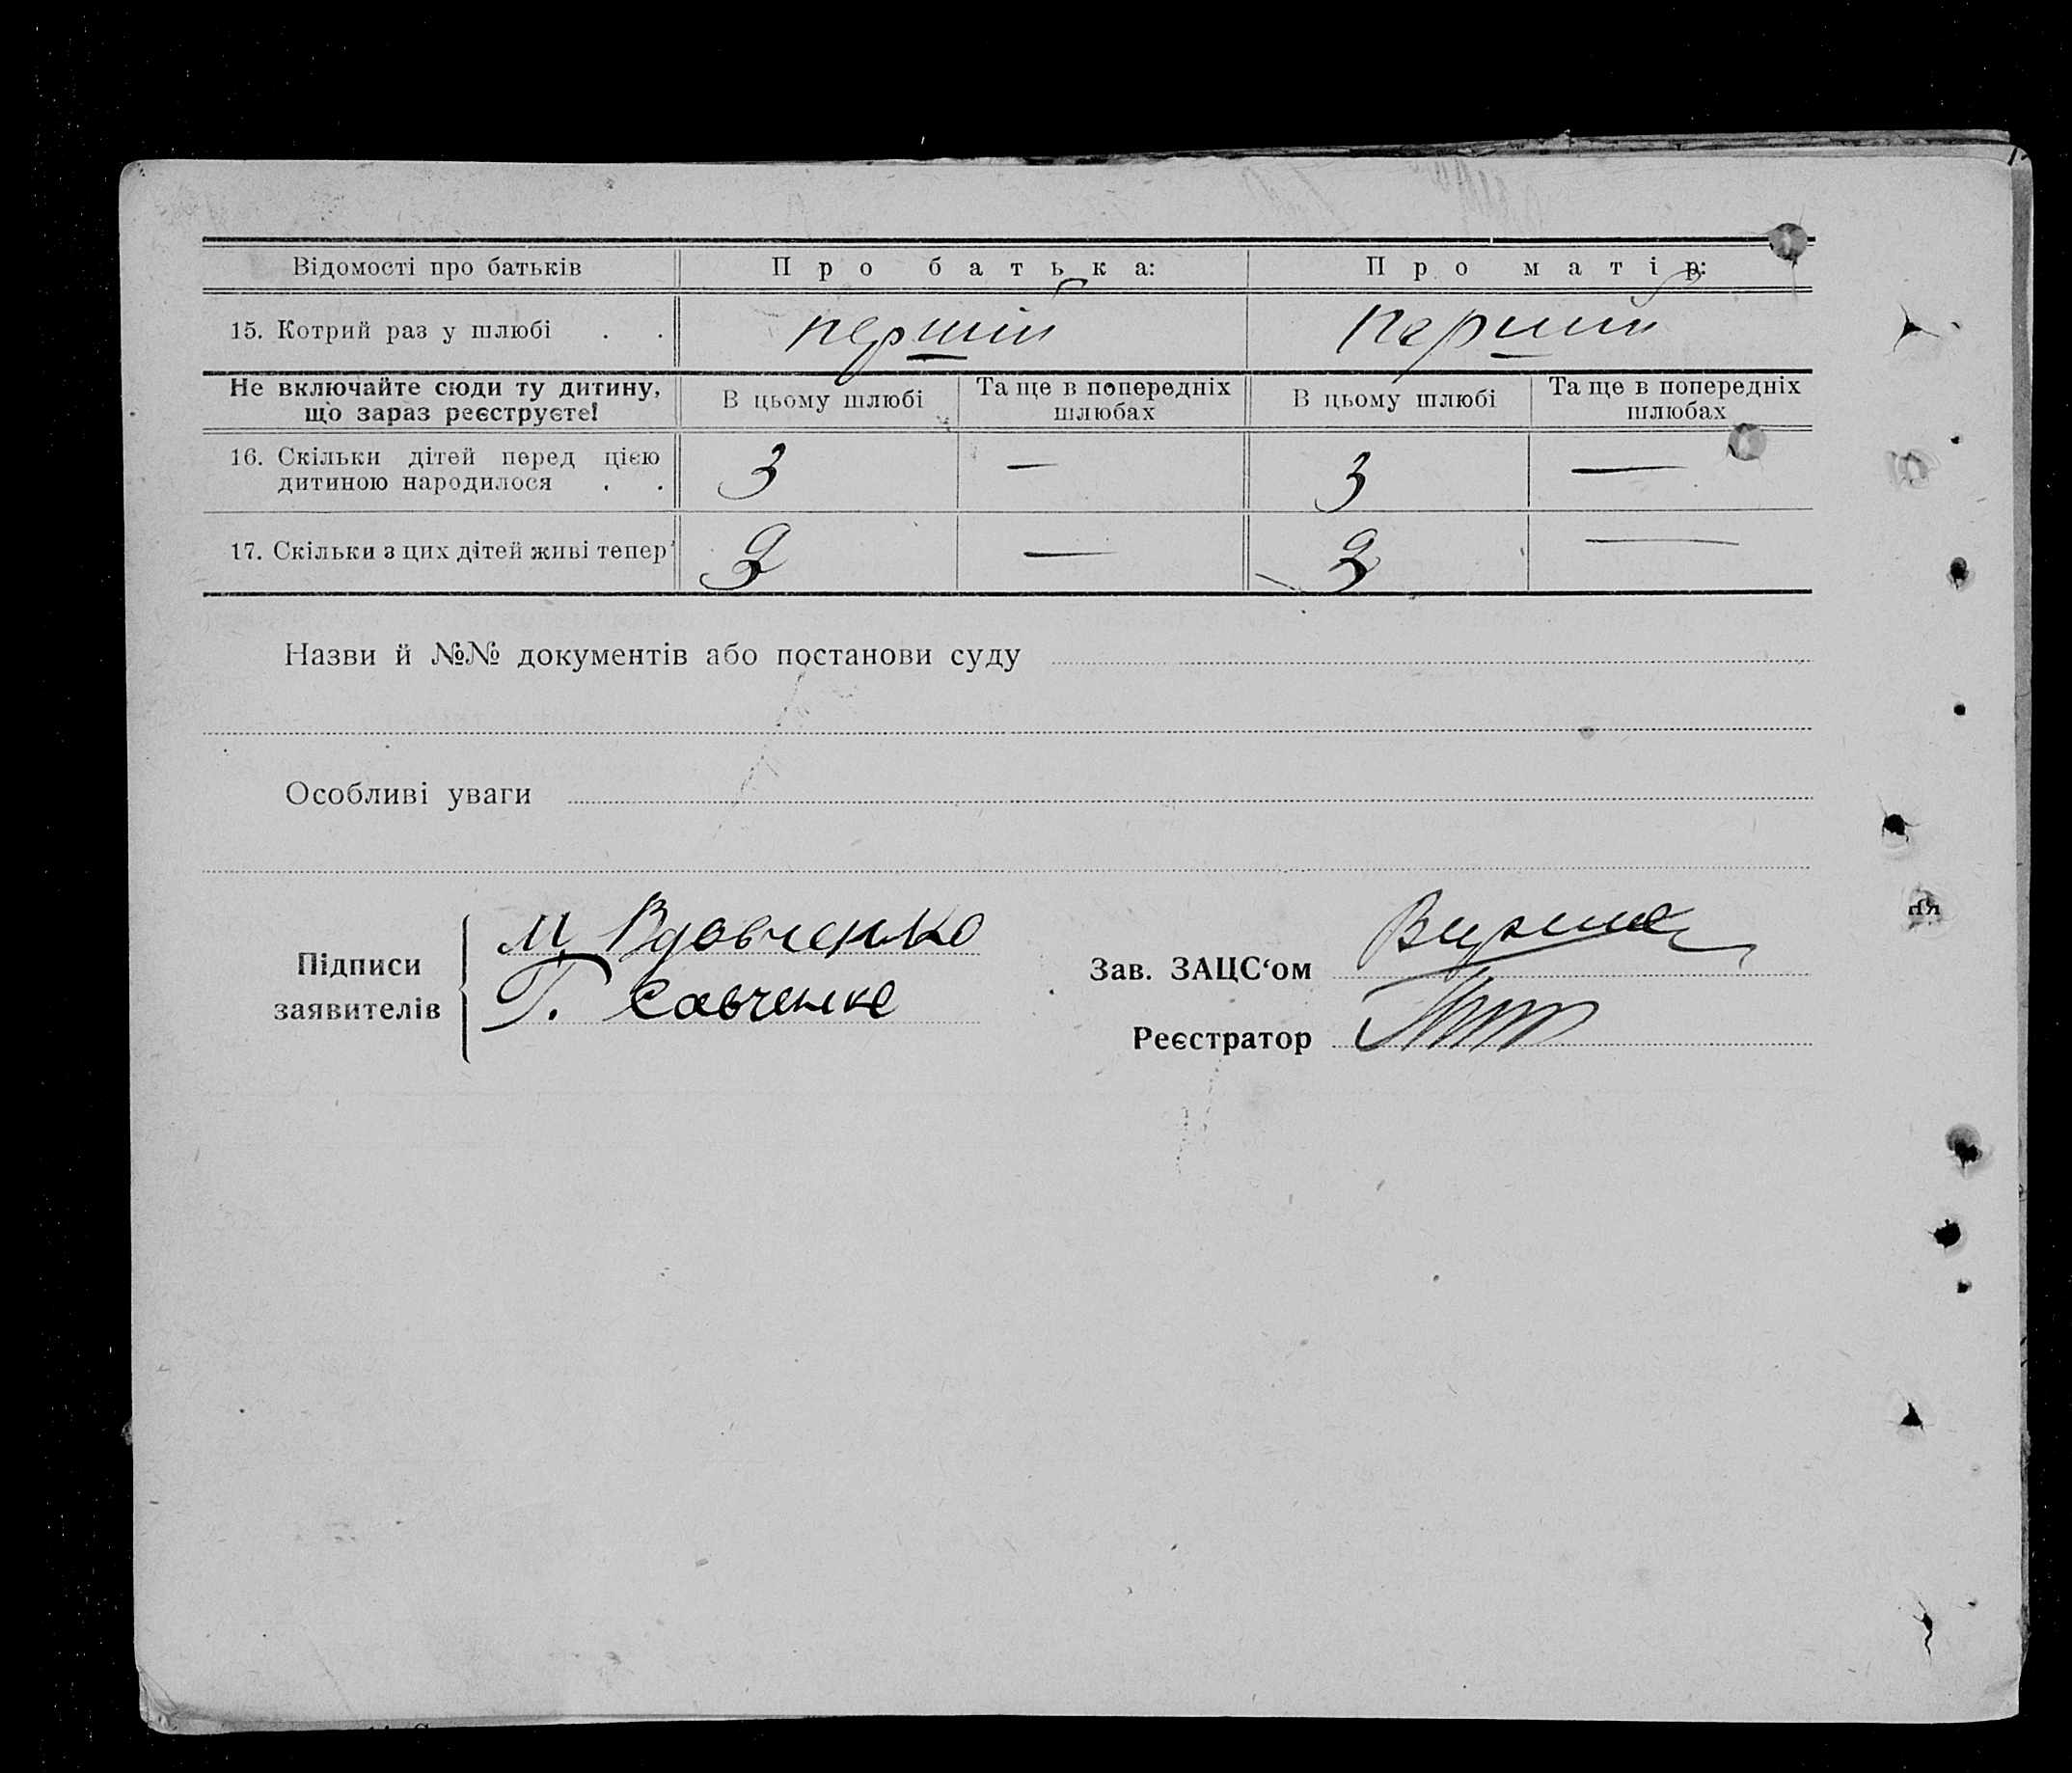 Відомості про батьків Про батька: Про матір:
15. Котрий раз у шлюбі . . перший перший
Не включайте сюди ту дитину, що зараз реєструєте! В цьому шлюбі Та ще в попередніх шлюбах В цьому шлюбі Та ще в попередніх шлюбах
16. Скільки дітей перед цією
дитиною народилося . . 3 — 3 —
17. Скільки з цих дітей живі тепер — —
Назви й №№ документів або постанови суду
Особливі уваги
Підписи
заявителів
М Вдовченко
Г. Савченко
Зав. ЗАЦС‘ом
Реєстратор